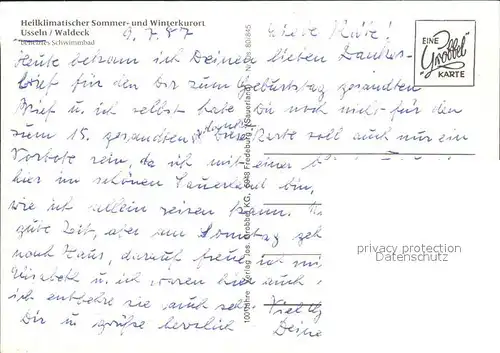 Heilklimatischer Sommer- und Winterkurort
Usseln / Waldeck
beheiztes Schwimmbad
9.7.87
Liebe Käte!
Heute bekam ich Deinen lieben Dankes-
brief für den Dir zum Geburtstag gesandten
Brief u. ich selbst habe Du noch nicht für den
zum 15. gesandten Diese Karte soll auch nur ein
Vorbote sein, da ich mit einer
hier im schönen Sauerland bin,
wie ich allein reisen kann.
gute Zeit, aber am Sonntag geh
nach Haus, darauf freue ich mi
Elisabeth u. ich waren hier auch
ich entbehre sie auch seh. Viel
Dir u grüße herzlich Deine
EINE
Grobbel
KARTE
100 Jahre Verlag Jos. Grobbel KG, 5948 Fredeburg (Sauerland)
privacy protection
Datenschutz